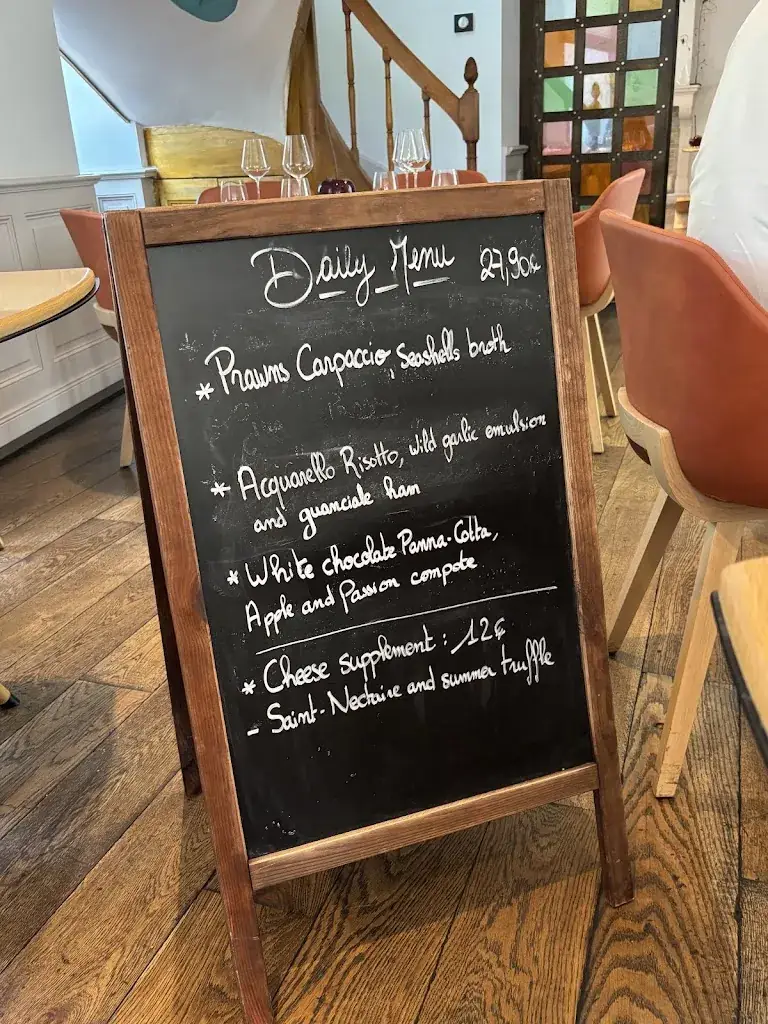 Daily Menu 27,90€
* Prawns Carpaccio, Seashells broth
* Acquarello Risotto, wild garlic emulsion
and guanciale ham
* White chocolate Panna-Cotta,
Apple and Passion compote
* Cheese supplement : 12€
- Saint-Nectaire and summer truffle